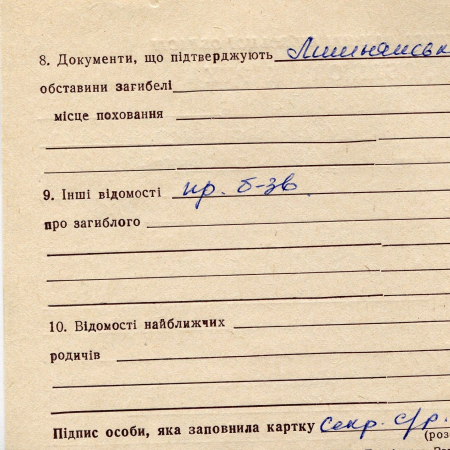 8. Документи, що підтверджують
обставини загибелі
місце поховання
9. Інші відомості пр. б-зв.
про загиблого
10. Відомості найближчих
родичів
Підпис особи, яка заповнила картку Секр. с/р.
(роз